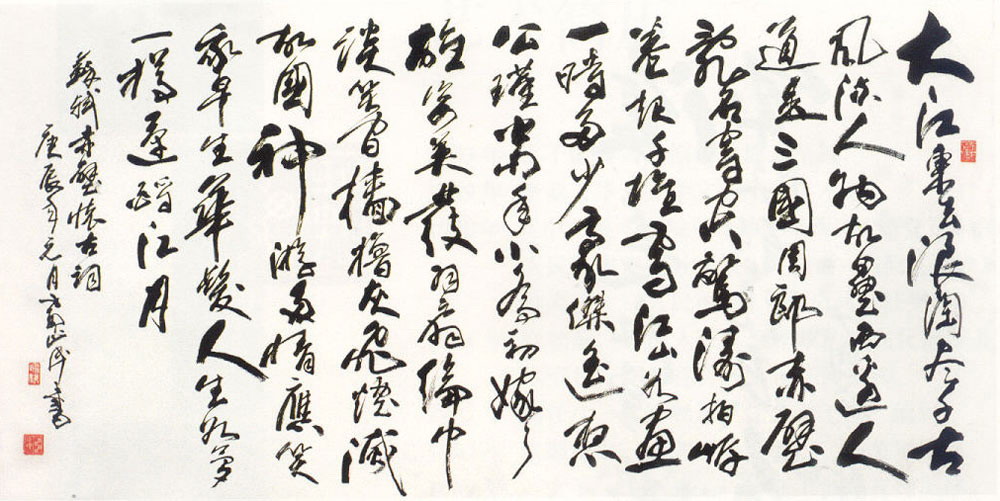 大江東去浪淘盡千古
風流人物故壘西邊人
道是三國周郎赤壁
亂石穿空驚濤拍岸
卷起千堆雪江山如畫
一時多少豪傑遙想
公瑾當年小喬初嫁了
雄姿英發羽扇綸巾
談笑間檣櫓灰飛煙滅
故國神游多情應笑
我早生華髮人生如夢
一樽還酹江月
蘇軾赤壁懷古詞
庚辰年元月書